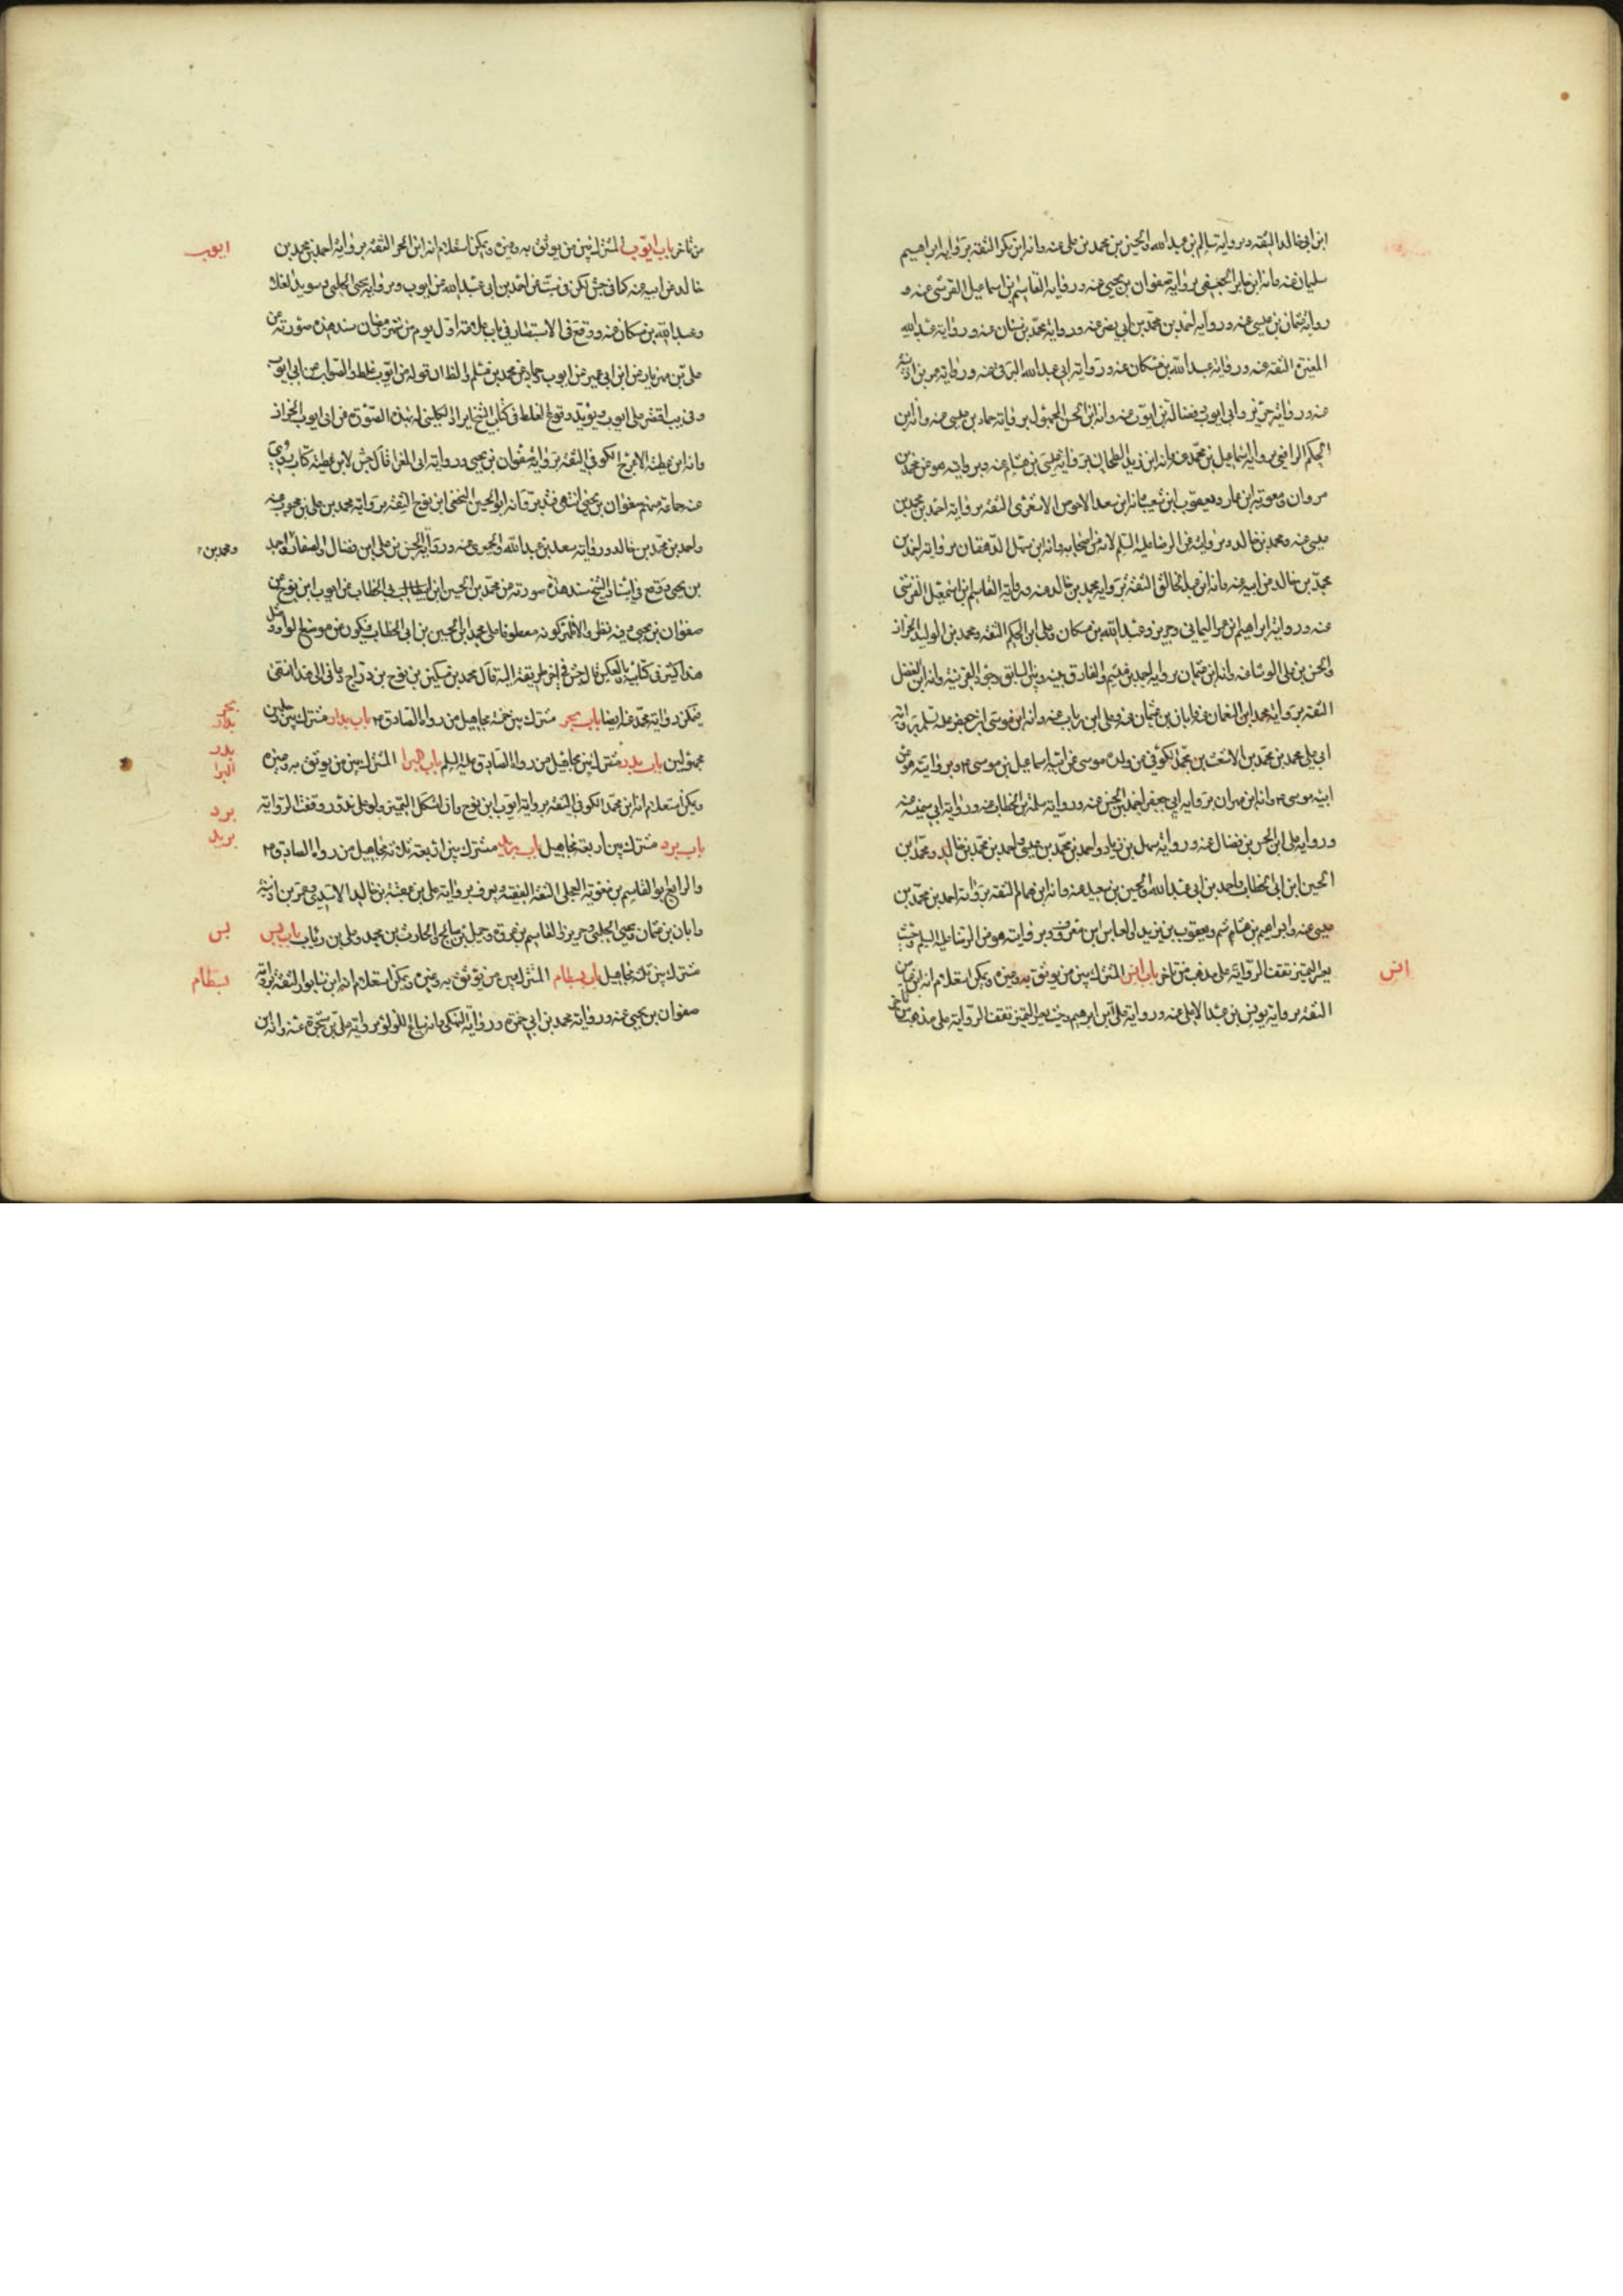 ابن ابي خالد الثقة وبرواية سالم بن عبد الله والحسين بن محمد بن علي عنه وانه ابن بكر الثقة برواية ابراهيم
سليمان عنه وانه ابن جابر الجعفي برواية صفوان بن يحيى عنه ورواية القاسم بن اسماعيل القرشي عنه و
رواية عثمان بن عيسى عنه ورواية احمد بن محمد بن ابي نصر عنه ورواية محمد بن سنان عنه ورواية عبد الله
المغيرة الثقة عنه ورواية عبد الله بن مسكان عنه ورواية ابي عبد الله البرقي عنه ورواية عمر بن اذينة
عنه ورواية حريز وابي ايوب وفضالة بن ايوب عنه وانه ابن الحر المجهول برواية حماد بن عيسى عنه وانه ابن
الحكم الرافعي برواية اسماعيل بن محمد عنه وانه ابن زيد الطحان برواية عيسى بن هشام عنه وبروايته هو عن محمد بن
مروان ومعوية ابن عمار ويعقوب ابن شعيب وانه ابن سعد الاحوص الاشعري الثقة برواية احمد بن محمد بن
عيسى عنه ومحمد بن خالد وبروايته عن الرضا عليه السلم لانه من اصحابه وانه ابن سهل الدهقان برواية احمد بن
محمد بن خالد عن ابيه عنه وانه ابن عبد الخالق الثقة برواية محمد بن خالد عنه ورواية القاسم ابن اسمعيل القرشي
عنه ورواية ابراهيم ابن عمر اليماني وحريز وعبد الله بن مسكان وعلي ابن الحكم الثقة ومحمد بن الوليد الخزاز
والحسن بن علي الوشا عنه وانه ابن عثمان برواية احمد بن ميثم والفارق بينه وبين السابق وجود القرينة وانه ابن الفضل
الثقة برواية محمد ابن النعمان عنه وابان بن عثمان عنه وعلي ابن رباب عنه وانه ابن موسى ابن جعفر برواية
ابي علي محمد بن محمد بن الاشعث بن محمد الكوفي عن ولده موسى عن ابيه اسماعيل بن موسى وبروايته هو عن
ابيه موسى وانه ابن مهران برواية ابي جعفر احمد بن الحسن عنه ورواية سلمة بن الخطاب عنه ورواية ابي سمينة عنه
ورواية علي ابن الحسن بن فضال عنه ورواية سهل بن زياد واحمد بن محمد بن عيسى واحمد بن محمد بن خالد ومحمد بن
الحسين ابن ابي الخطاب واحمد بن ابي عبد الله والحسين بن سعيد عنه وانه ابن همام الثقة برواية احمد بن محمد بن
عيسى عنه وابراهيم بن هاشم ويعقوب بن يزيد والعباس ابن معروف وبروايته هو عن الرضا عليه السلم وحيث
يعسر التميز تقف الرواية على مذهب من تاخر باب انس المشترك بين من يوثق به وغيره ويمكن استعلام انه ابن عياض
الثقة برواية يونس بن عبد الاعلى عنه ورواية علي ابن ابرهيم وحيث يعسر التميز تقف الرواية على مذهب
انس
من تاخر باب ايوب المشترك بين من يوثق به وغيره ويمكن استعلام انه ابن الحر الثقة برواية احمد بن محمد بن
ايوب
خالد عن ابيه عنه كما في جش لكن في ست عن احمد بن ابي عبد الله عن ايوب وبرواية يحيى الحلبي وسويد القلا
وعبد الله بن مسكان عنه ووقع في الاستبصار في باب علامة اول يوم من شهر رمضان سند هذه صورته عن
علي بن مهزيار عن ابن ابي عمير عن ايوب وحماد عن محمد بن مسلم والظ ان قوله عن ايوب غلط والصواب عن ابي ايوب
وفي يب اقتصر على ايوب ويؤيد وقوع الغلط في كتابي الشيخ ايراد الكليني له بهذه الصورة عن ابي ايوب الخزاز
وانه ابن عطية الاعرج الكوفي الثقة برواية صفوان بن يحيى ورواية ابي المغرا قال جش لابن عطية كتاب يرويه
عنه جماعة منهم صفوان بن يحيى انتهى فتدبر وانه ابو الحسين النخعي ابن نوح الثقة برواية محمد بن علي بن محبوب عنه
واحمد بن محمد بن خالد ورواية سعد بن عبد الله والحميري عنه ورواية الحسن بن علي ابن فضال والصفار واحمد
ومحمد بن
بن يحيى ووقع في اسناد الشيخ سند هذه صورته عن محمد بن الحسين ابن ابي الخطاب عن ايوب ابن نوح عن
صفوان بن يحيى وفيه نظر والاظهر كونه معطوفا على محمد ابن الحسين بن ابي الخطاب فيكون من موضع الواو ومثل
هذا كثير في كتابيه بالعكس قال جش في اخر طريقه اليه قال محمد بن سكين بن نوح بن دراج
فيكن رواية محمد عنه ايضا باب بحر مشترك بين خمسة مجاهيل من رواة الصادق باب بدار مشترك بين رجلين
بحر
بدار
مجهولين باب بدر مشترك بين مجاهيل من رواة الصادق عليه السلم باب البرا المشترك بين من يوثق به وغيره
بدر
البرا
ويمكن استعلام انه ابن محمد الكوفي الثقة برواية ايوب ابن نوح وان اشكل التميز ولو على ندور وقفت الرواية
برد
باب برد مشترك بين اربعة مجاهيل باب بريد مشترك بين اربعة ثلثة مجاهيل من رواة الصادق
بريد
والرابع ابو القاسم بن معوية العجلي الثقة الفقيه ويعرف برواية علي بن عقبة بن خالد الاسدي وعمر بن اذينة
وابان بن عثمان ويحيى الحلبي وحريز والقاسم بن عروة وجميل بن صالح والحارث بن محمد وعلي بن رئاب باب بس
بس
مشترك بين ثلثة مجاهيل باب بسطام المشترك بين من يوثق به وغيره ويمكن استعلام انه ابن سابور الثقة برواية
بسطام
صفوان بن يحيى عنه ورواية محمد بن ابي حمزة ورواية وانه بياع اللؤلؤ برواية علي بن شجرة عنه وانه ابن